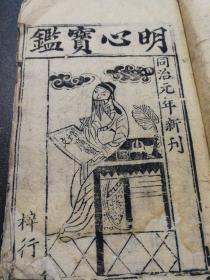 明心寶鑑
同治元年新刊
梓行